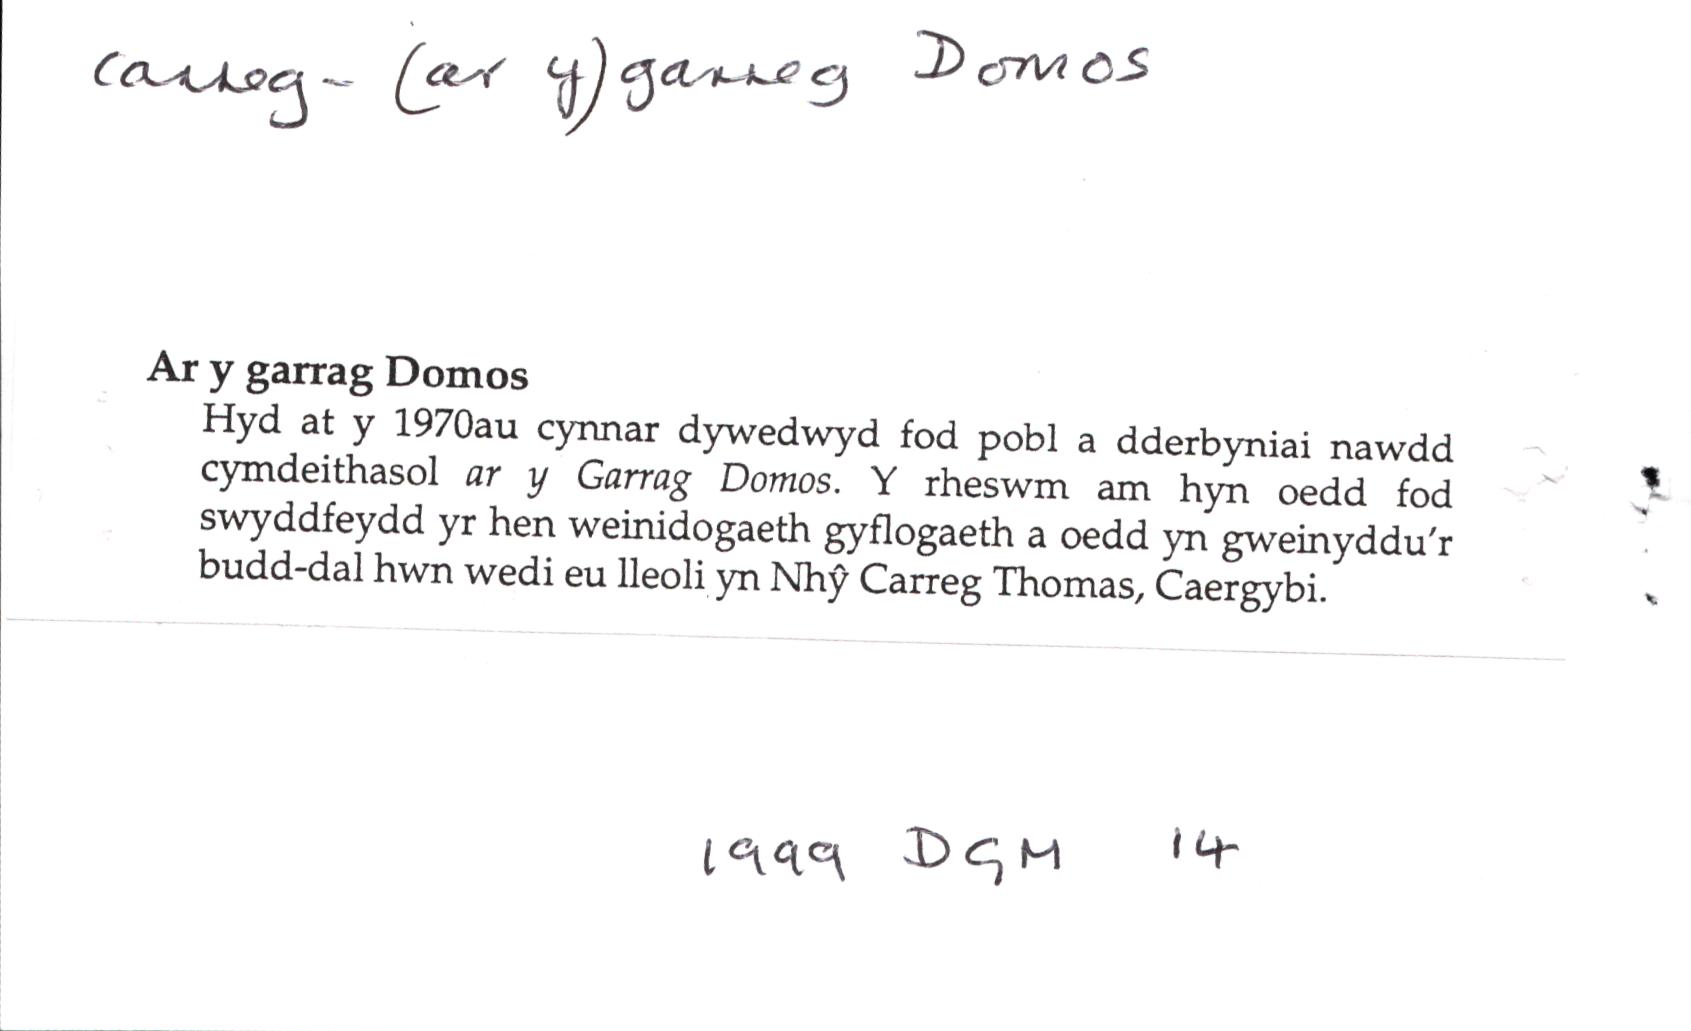 carreg - (ar y) garreg Domos
Ar y garrag Domos
Hyd at y 1970au cynnar dywedwyd fod pobl a dderbyniai nawdd
cymdeithasol ar y Garrag Domos. Y rheswm am hyn oedd fod
swyddfeydd yr hen weinidogaeth gyflogaeth a oedd yn gweinyddu'r
budd-dal hwn wedi eu lleoli yn Nhŷ Carreg Thomas, Caergybi.
1999 DGM 14